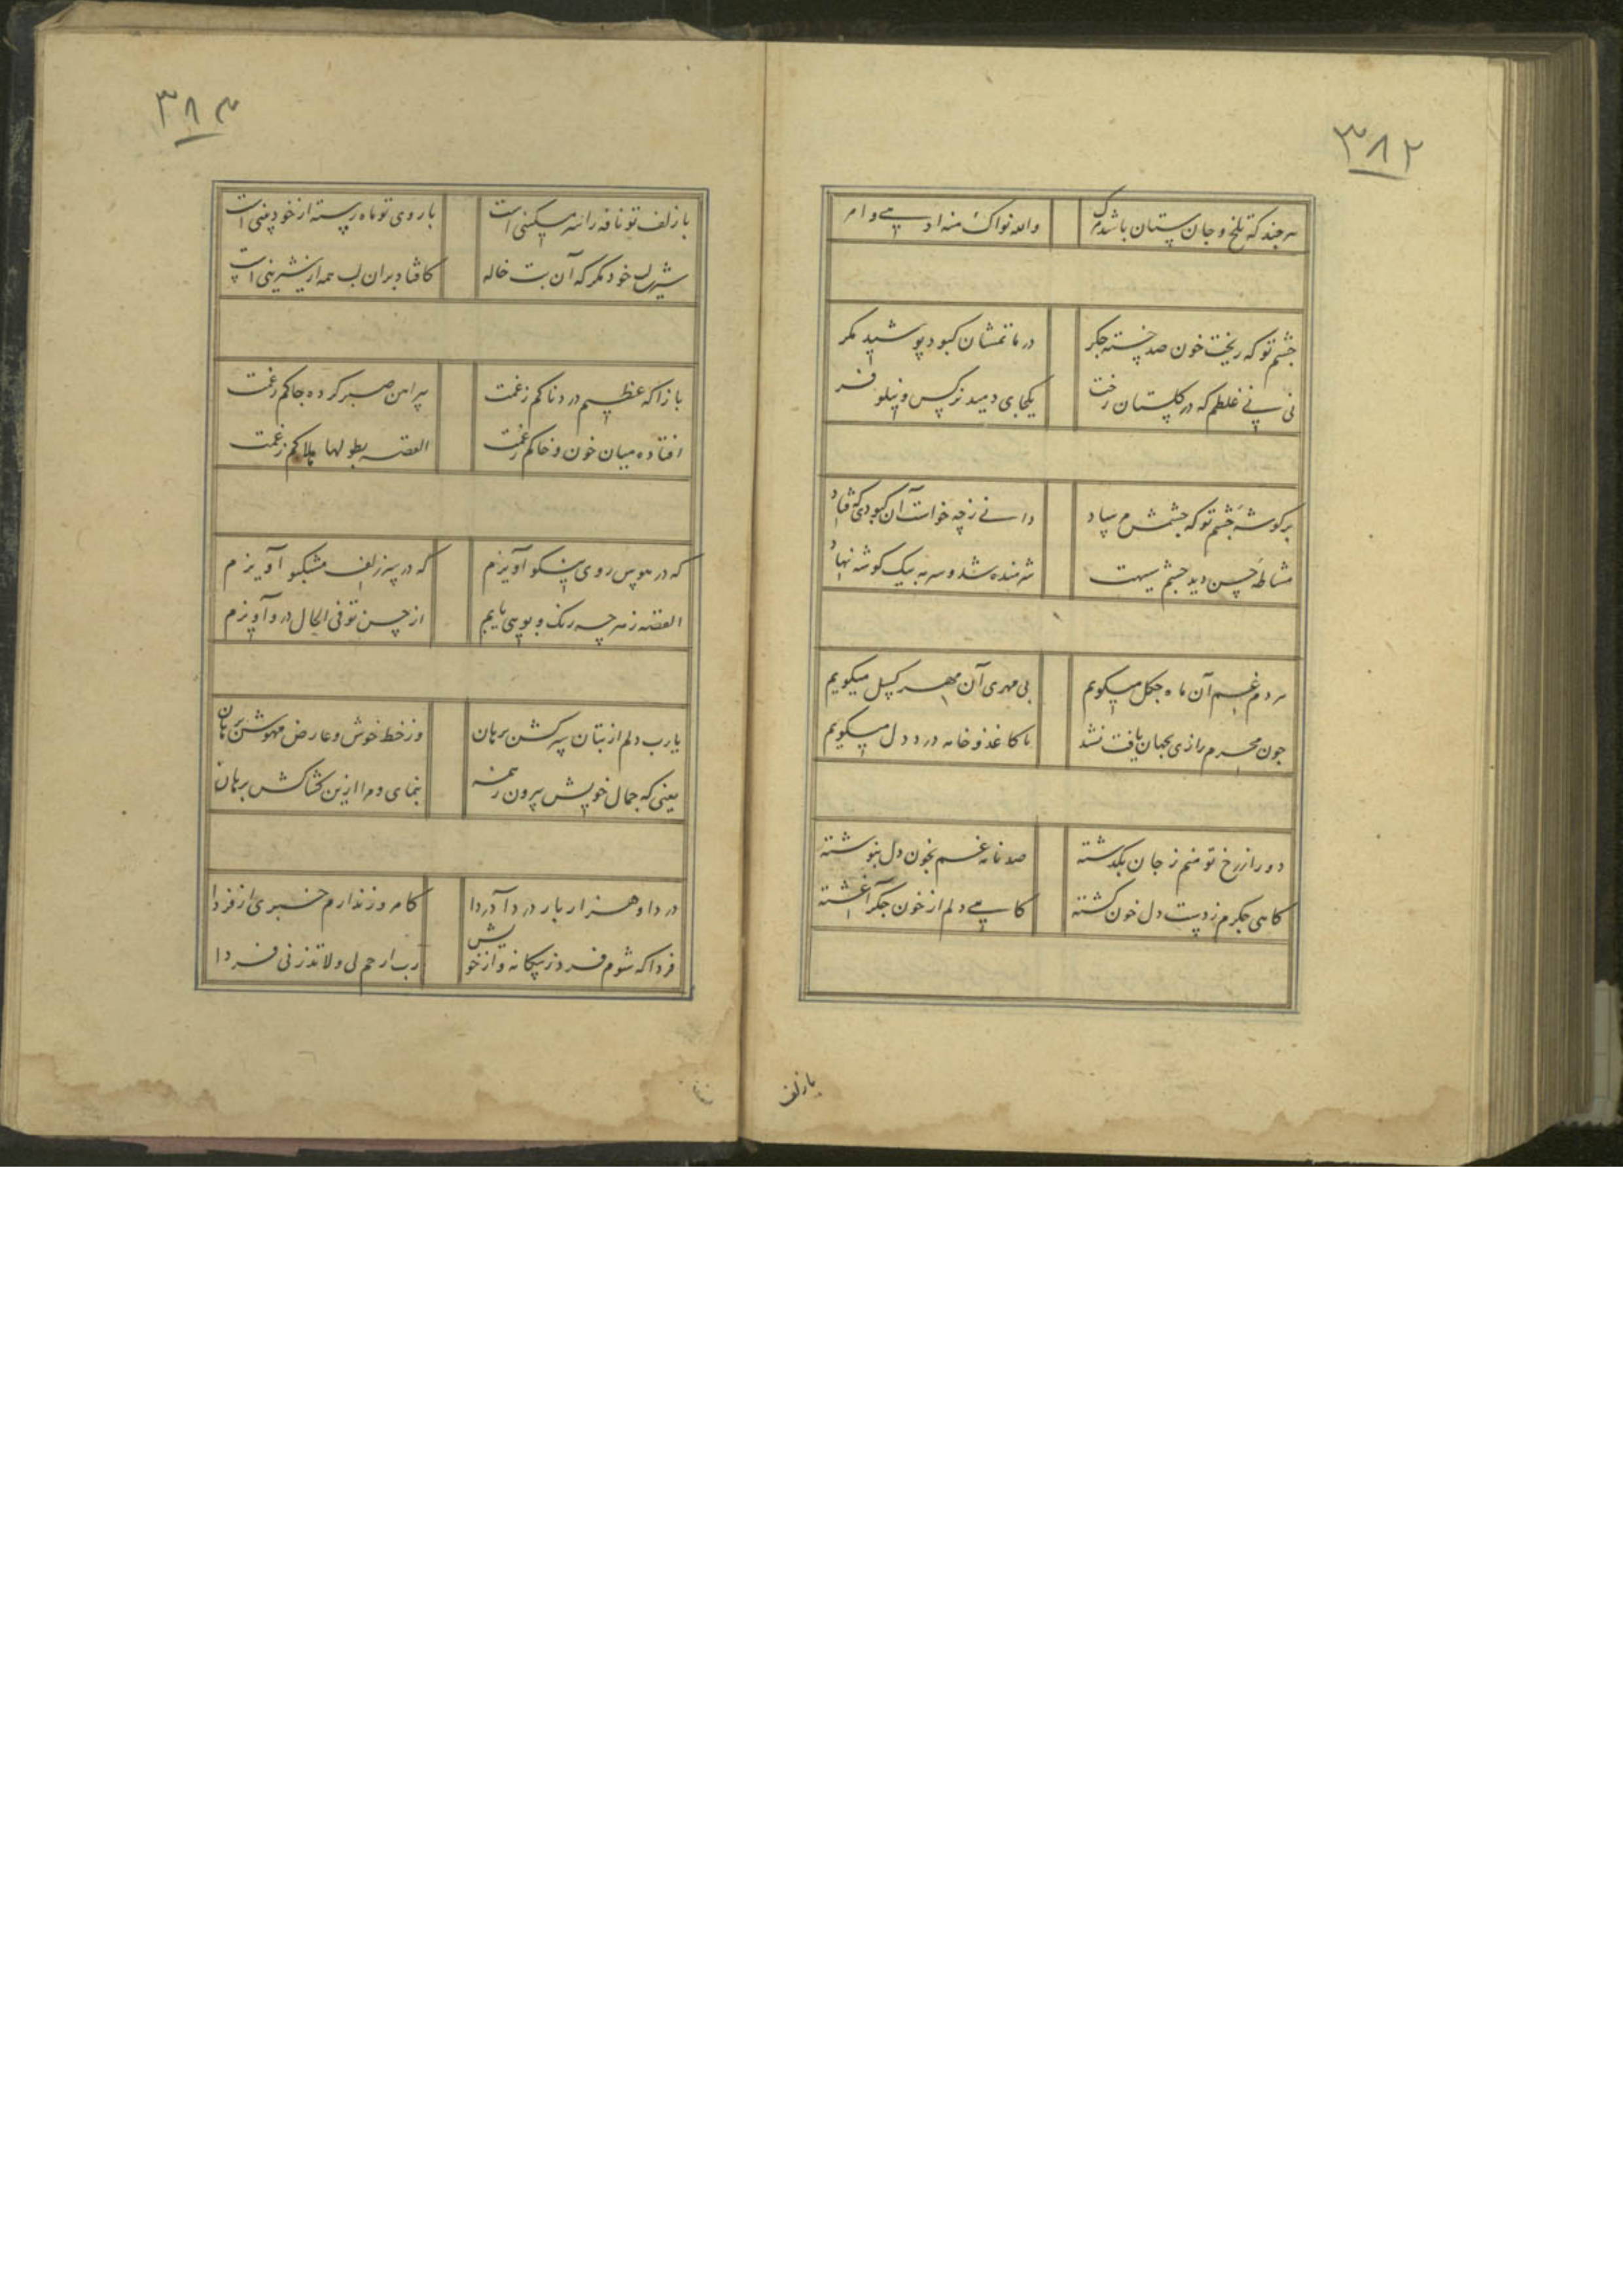 ۳۸۲
هر چند که تلخ و جان ستان باشد مرگ والله تو اک منه او می و امر
چشم تو که ریخت خون صد خسته جکر در ماتمشان کبود پوشید مکر
نی نی غلطم که در کلستان رخت یکجای دمید نرکس و نیلوفر
بر کوشهٔ چشم تو که چشمش مرساد دانی ز چه خواست آن کبودی که فتاد
مشاطهٔ حسن دید چشم سیهت شرمنده شد و سرمه بیک کوشه نهاد
هر دم غم آن ماه چکل میکویم بی مهری آن مهر کسل میکویم
چون محرم رازی بجهان یافت نشد با کاغذ و خامه درد دل میکویم
دور از رخ تو منم ز جان بکذشته صد نامه غم بخون دل بنوشته
کاهی جکرم ز دست دل خون کشته کاهی دلم از خون جکر آغشته
با زلف
۳۸۳
با زلف تو نافه را سر مسکینی است با روی تو ماه رسته از خود بینی است
شیرین لب خود مکر که آن بت خاله کافتاد بران لب همه از شیرینی است
بازا که عظیم دردناکم ز غمت پیراهن صبر کرده چاکم ز غمت
افتاده میان خون و خاکم ز غمت القصه بطولها هلاکم ز غمت
که در هوس روی نیکو آویزم که در سر زلف مشکبو آویزم
القصه ز هر چه رنک و بویی یابم از حسن تو فی الحال درو آویزم
یارب دلم از بتان سرکش برهان وز خط خوش و عارض مهوش برهان
یعنی که جمال خویش بیرون ز همه بنمای و مرا ازین کشاکش برهان
دردا و هزار بار دردا دردا کامروز ندارم خبری از فردا
فردا که شوم فرد ز بیکانه و از خویش رب ارحم لی ولا تذرنی فردا